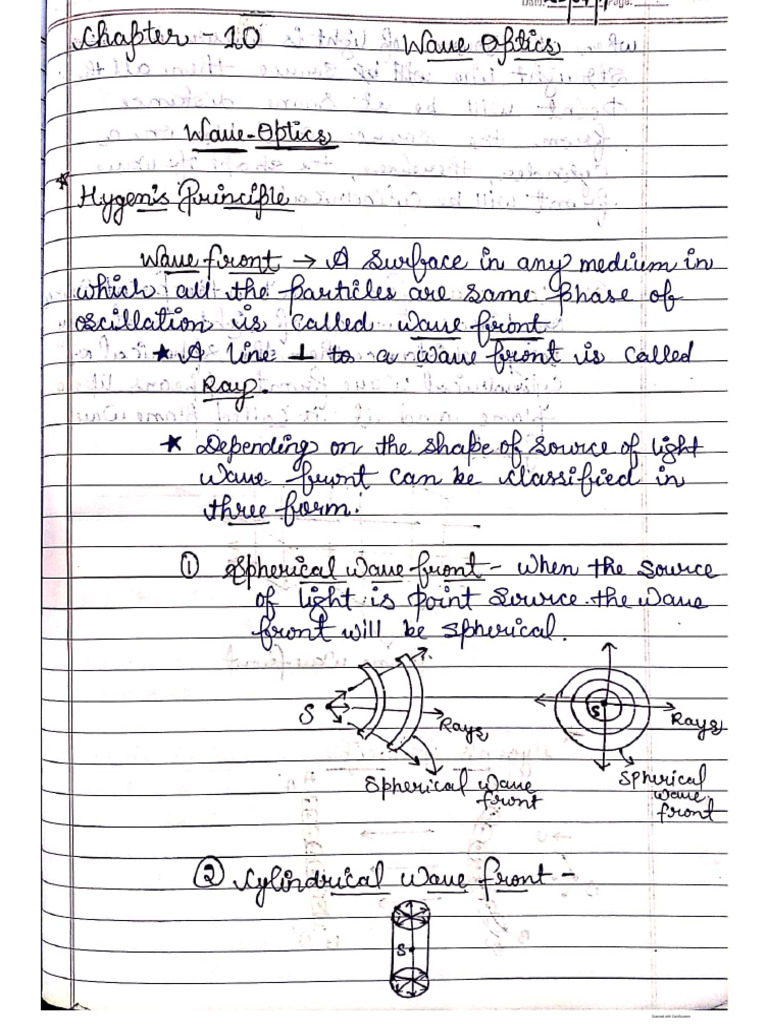 Date: Page:
Chapter - 10 Wave Optics
Wave-Optics
* Hygen's Principle
Wave front → A surface in any medium in
which all the particles are same phase of
oscillation is called wave front
★ A line ⊥ to a wave front is called
Ray.
★ Depending on the shape of source of light
wave frunt can be classified in
three form.
① Spherical wave front - when the source
of light is point source. the wave
front will be spherical.
S Rays
Spherical wave
front
S Rays
Spherical
wave
front
② Cylindrical wave front -
S
Scanned with CamScanner